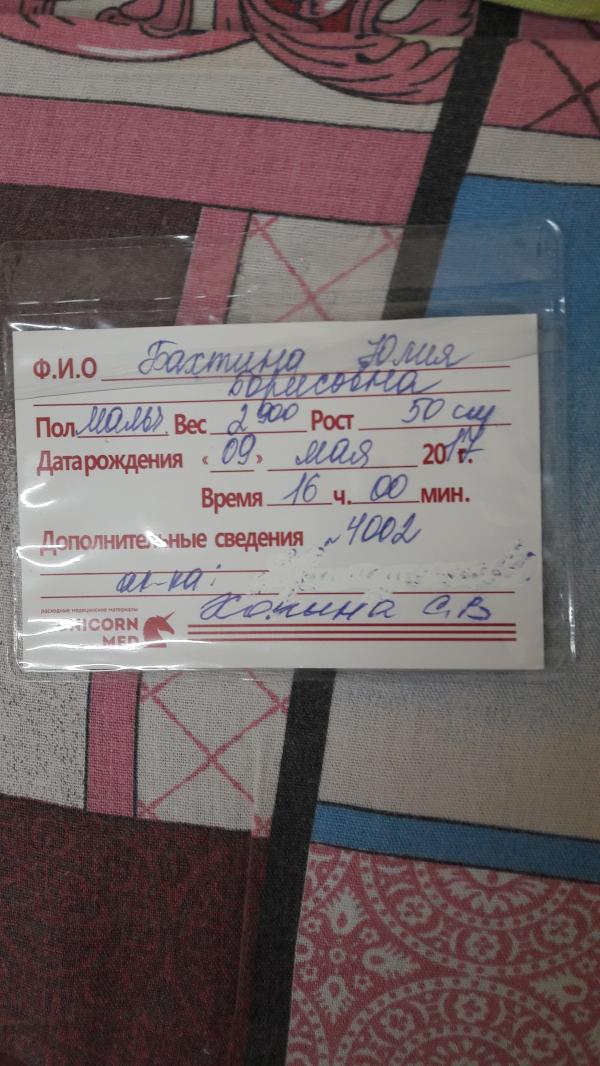 Ф.И.О Бахтина Юлия
Борисовна
Пол мальч. Вес 2 900 Рост 50 см
Дата рождения «09» мая 2017 г.
Время 16 ч. 00 мин.
Дополнительные сведения 4002
ак-ка:
расходные медицинские материалы
UNICORN
MED
С.В